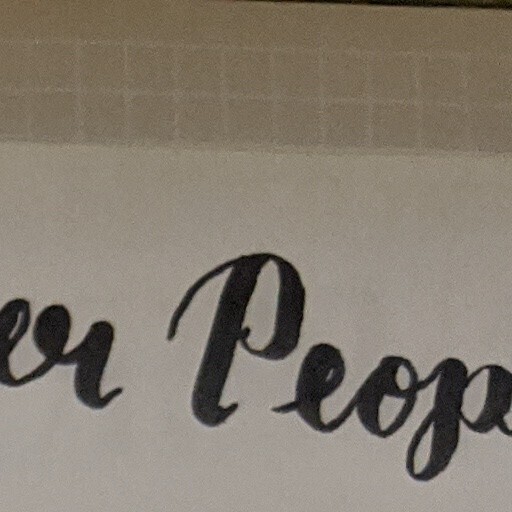 er Peop